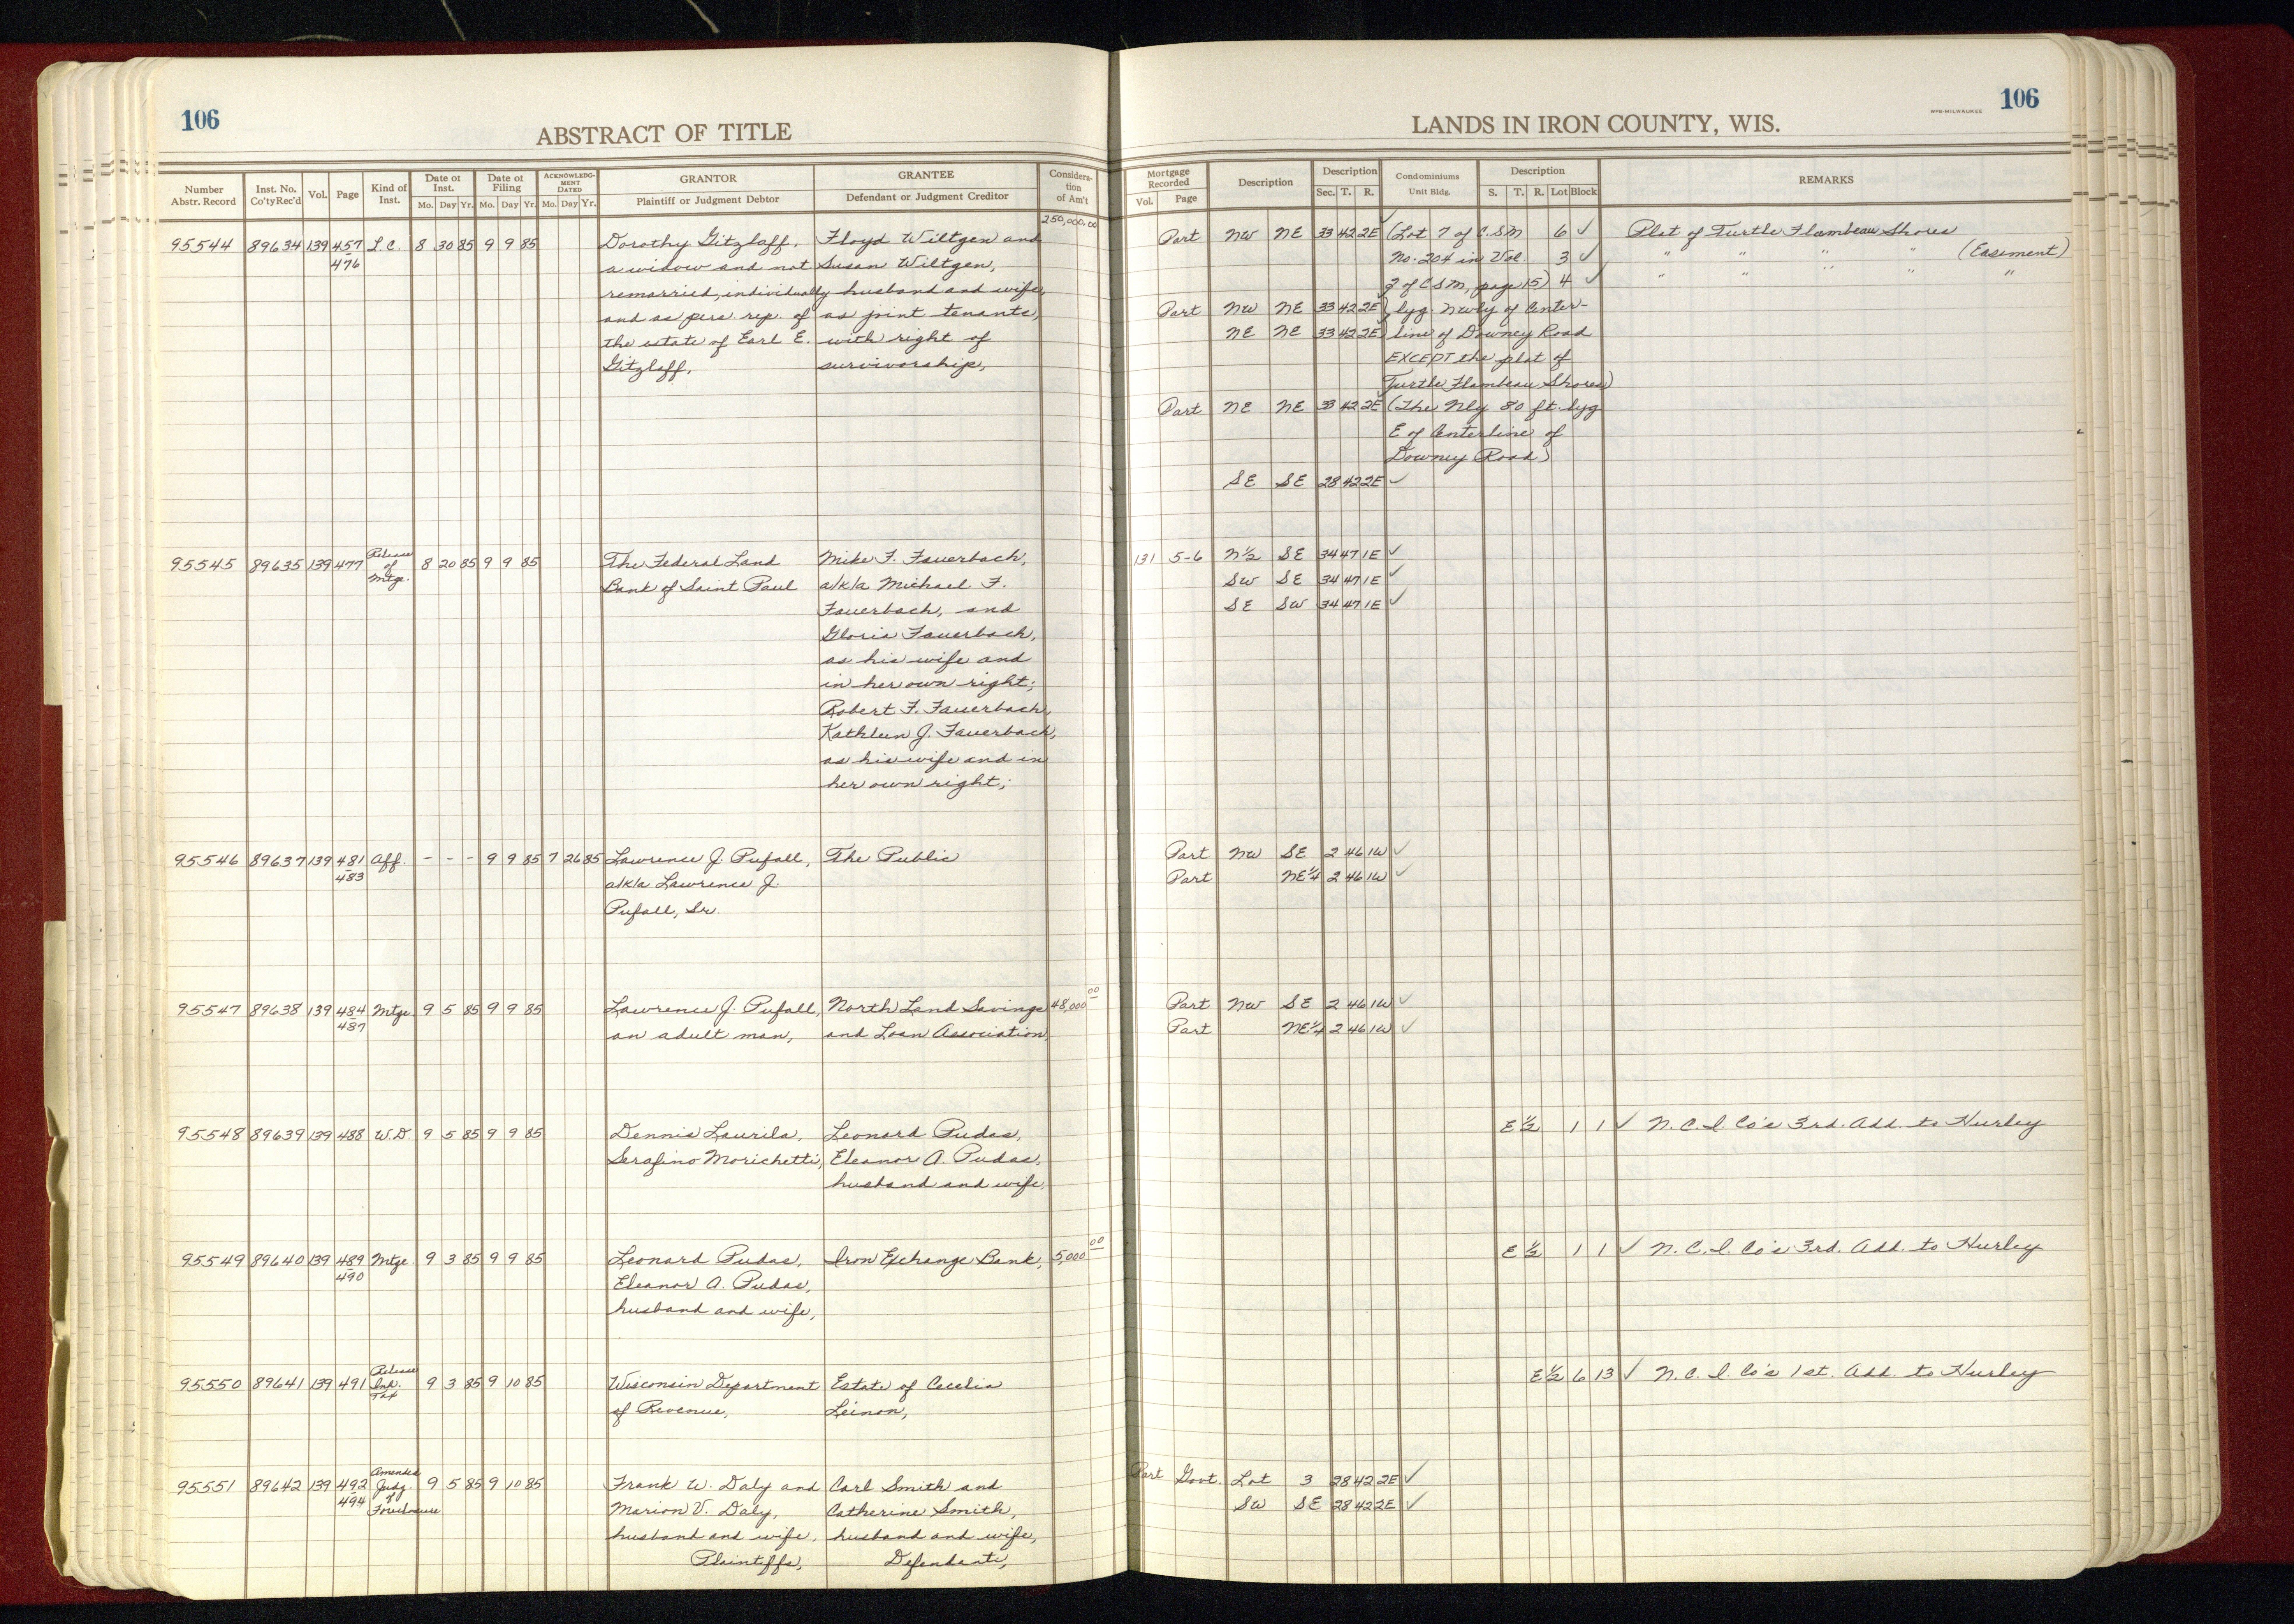 106
ABSTRACT OF TITLE
Number Abstr. Record
Inst. No. Co'ty Rec'd
Vol.
Page
Kind of Inst.
Date of Inst.
Mo. Day Yr.
Date of Filing
Mo. Day Yr.
ACKNOWLEDGMENT DATED
Mo. Day Yr.
GRANTOR
Plaintiff or Judgment Debtor
GRANTEE
Defendant or Judgment Creditor
Consideration of Am't
250,000.00
95544 89634 139 457 L.C. 8 30 85 9 9 85 Dorothy Gitzlaff, Floyd Wiltgen and
476 a widow and not Susan Wiltgen,
remarried, individually husband and wife,
and as pers. rep. of as joint tenants,
the estate of Earl E. with right of
Gitzlaff, survivorship,
95545 89635 139 477 Release of Mtge. 8 20 85 9 9 85 The Federal Land Mike F. Fauerbach,
Bank of Saint Paul a/k/a Michael F.
Fauerbach, and
Gloria Fauerbach,
as his wife and
in her own right;
Robert F. Fauerbach,
Kathleen J. Fauerbach,
as his wife and in
her own right;
95546 89637 139 481 Aff. - - - 9 9 85 7 26 85 Lawrence J. Pufall, The Public
483 a/k/a Lawrence J.
Pufall, Sr.
95547 89638 139 484 Mtge. 9 5 85 9 9 85 Lawrence J. Pufall, North Land Savings 48,000 00
487 an adult man, and Loan Association,
95548 89639 139 488 W.D. 9 5 85 9 9 85 Dennis Laurila, Leonard Pudas,
Serafino Morichetti, Eleanor A. Pudas,
husband and wife,
95549 89640 139 489 Mtge. 9 3 85 9 9 85 Leonard Pudas, Iron Exchange Bank, 5,000 00
490 Eleanor A. Pudas,
husband and wife,
95550 89641 139 491 Release Inh. Tax 9 3 85 9 10 85 Wisconsin Department Estate of Cecelia
of Revenue, Leinon,
95551 89642 139 492 Amended Judg. of Foreclosure 9 5 85 9 10 85 Frank W. Daly and Carl Smith and
494 Marion V. Daly, Catherine Smith,
husband and wife, husband and wife,
Plaintiffs, Defendants,
106
LANDS IN IRON COUNTY, WIS.
WPB-MILWAUKEE
Mortgage Recorded
Vol. Page
Description
Description
Sec. T. R.
Condominiums
Unit Bldg.
Description
S. T. R. Lot Block
REMARKS
Part NW NE 33 42 2E (Lot 7 of C.S.M 6 ✓ Plat of Turtle Flambeau Shores
No. 204 in Vol. 3 ✓ " " " " (Easement)
2 of CSM, page 15) 4 ✓ " " " " "
Part NW NE 33 42 2E) lyg. Nwly of Center-
NE NE 33 42 2E) line of Downey Road
EXCEPT the plat of
Turtle Flambeau Shores)
Part NE NE 33 42 2E (The Nly 80 ft. lyg
E of Centerline of
Downey Road)
SE SE 28 42 2E ✓
131 5-6 N½ SE 34 47 1E ✓
SW SE 34 47 1E ✓
SE SW 34 47 1E ✓
Part NW SE 2 46 1W ✓
Part NE¼ 2 46 1W ✓
Part NW SE 2 46 1W ✓
Part NE¼ 2 46 1W ✓
E½ 1 1 ✓ N.C.I. Co's 3rd. Add. to Hurley
E½ 1 1 ✓ N.C.I. Co's 3rd. Add. to Hurley
E½ 6 13 ✓ N.C.I. Co's 1st. Add. to Hurley
Part Govt. Lot 3 28 42 2E ✓
SW SE 28 42 2E ✓